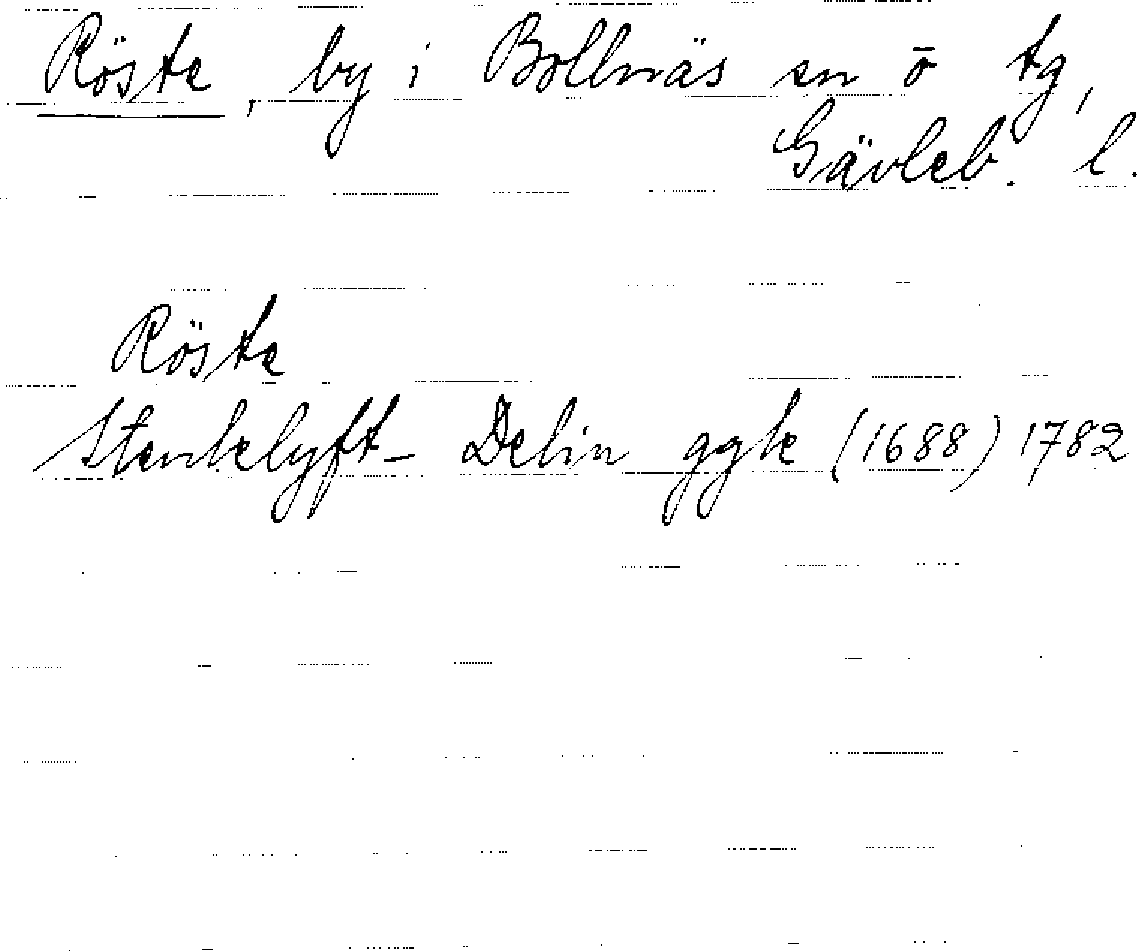 Röste, by i Bollnäs sn ō tg,
Gävleb. l.
Röste
Stenkelyft- Delin ggk (1688) 1782